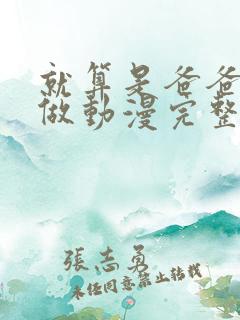 就算是爸爸
做動漫完整
張志勇
未經同意禁止轉載